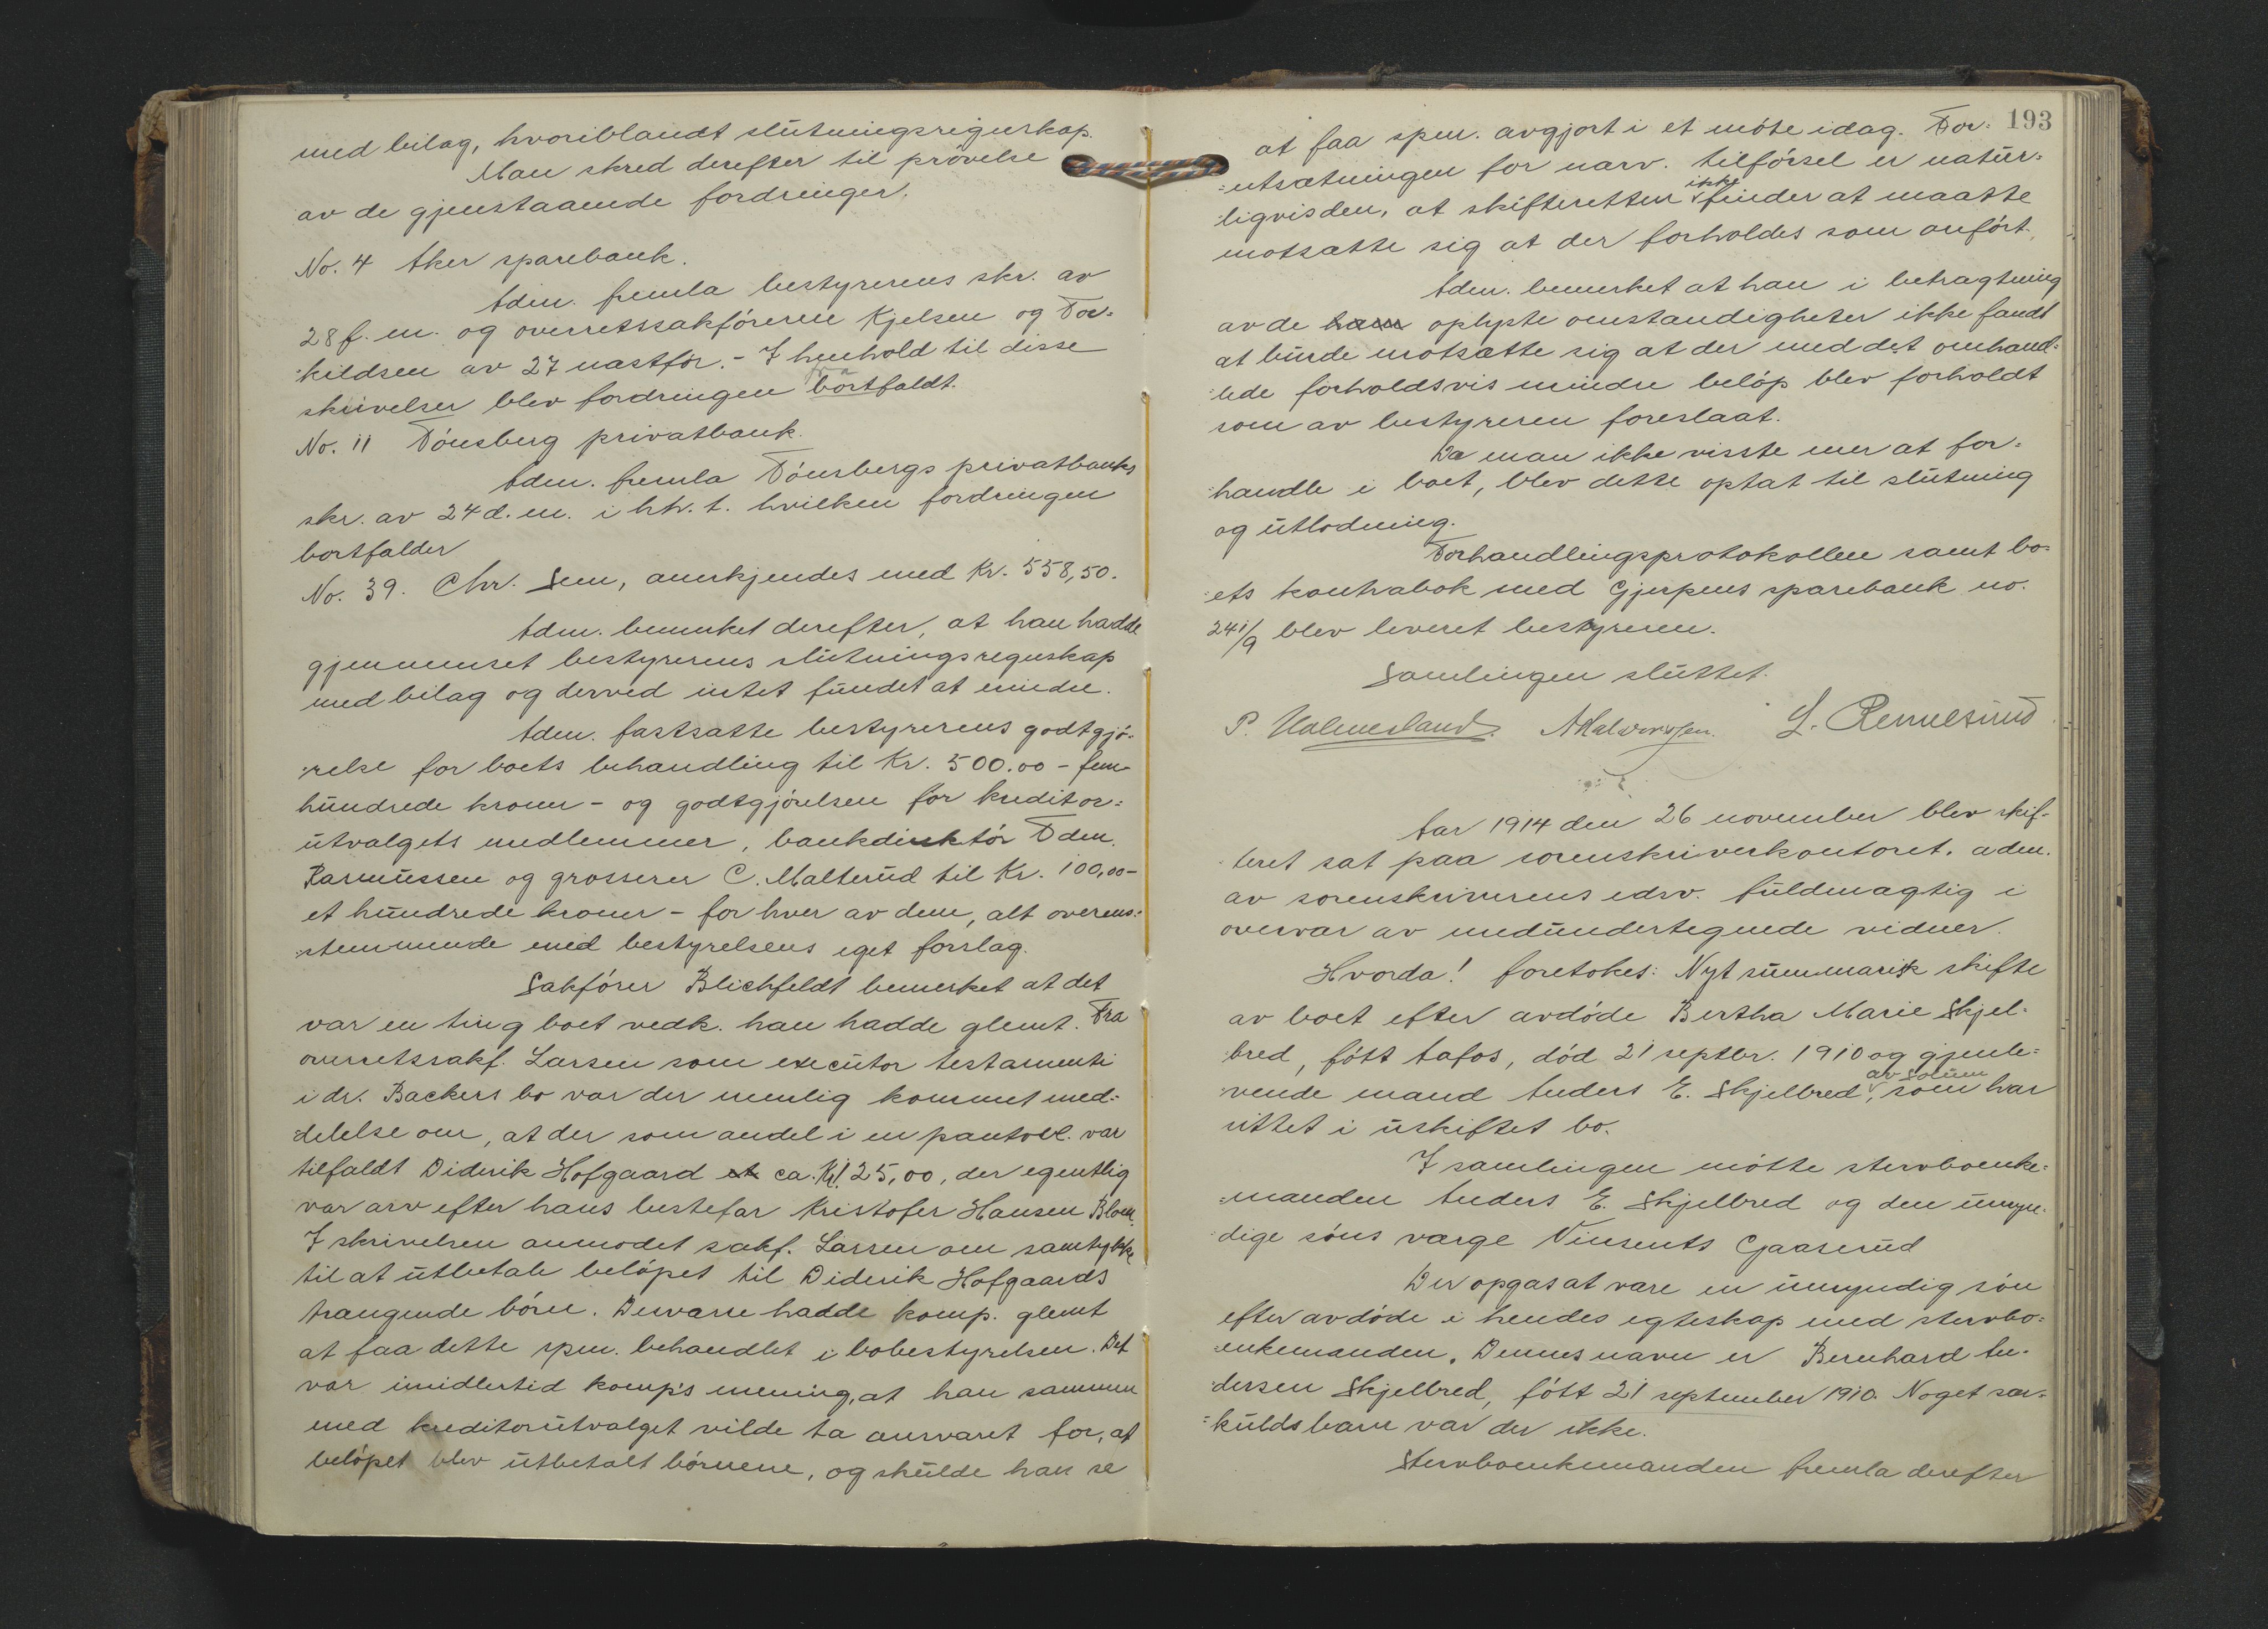 med bilag, hvoriblandt slutningsregnskap.
Man skred derefter til prøvelse
av de gjenstaaende fordringer.
No. 4 Aker sparebank.
Adm. fremla bestyrerens skr. av
28 f. m. og overretssakførerne Kjelsen og Tor-
kildsen av 27 næstfør. - I henhold til disse
skrivelser blev fordringen bortfaldt.
No. 11 Tønsberg privatbank.
Adm. fremla Tønsbergs privatbanks
skr. av 24 d. m. i hh. t. hvilken fordringen
bortfalder
No. 39. Chr. Sem, anerkjendes med Kr. 558,50.
Adm. bemerket derefter, at han hadde
gjennemset bestyrerens slutningsregnskap
med bilag og derved intet fundet at erindre.
Adm. fastsatte bestyrerens godtgjø-
:relse for boets behandling til Kr. 500.00 - fem-
hundrede kroner - og godtgjørelsen for kreditor=
utvalgets medlemmer, bankdirektør Fdm.
Rasmussen og grosserer C. Malterud til Kr. 100,00-
et hundrede kroner - for hver av dem, alt overens=
:stemmende med bestyrelsens eget forslag.
Sakfører Blichfeldt bemerket at det
var en ting boet vedk. han hadde glemt. Fra
overretssakf. Larsen som executor testamenti
i dr. Backers bo var der nemlig kommet med=
:delelse om, at der som andel i en pantobl. var
tilfaldt Diderik Hofgaard et ca. Kr. 25,00, der egentlig
var arv efter hans bestefar Kristofer Hansen Blom.
I skrivelsen anmodet sakf. Larsen om samtykke
til at utbetale beløpet til Diderik Hofgaards
trængende børn. Desværre hadde komp. glemt
at faa dette spm. behandlet i bobestyrelsen. Det
var imidlertid komp's mening, at han sammen
med kreditorutvalget vilde ta ansvaret for, at
beløpet blev utbetalt børnene, og skulde han se
193
at faa spm. avgjort i et møte idag. For=
:utsætningen for nærv. tilførsel er natur=
:ligvis den, at skifteretten ikke finder at maatte
motsætte sig at der forholdes som anført.
Adm. bemerket at han i betragtning
av de ham oplyste omstændigheter ikke fandt
at burde motsætte sig at der med det omhand=
:lede forholdsvis mindre beløp blev forholdt
som av bestyreren foreslaat.
Da man ikke visste mer at for=
:handle i boet, blev dette optat til slutning
og utlodning.
Forhandlingsprotokollen samt bo=
:ets kontrabok med Gjerpens sparebank no.
241/9 blev leveret bestyreren.
Samlingen sluttet.
P. Valmesland. A Halvorsen. L. Remesund
Aar 1914 den 26 november blev skif-
:teret sat paa sorenskriverkontoret. adm.
av sorenskriverens edsv. fuldmægtig i
overvær av medundertegnede vidner.
Hvorda! foretokes: Nyt summarisk skifte
av boet efter avdøde Bertha Marie Skjel=
:bred, født Aafos, død 21 septbr. 1910 og gjenle=
:vende mand Anders E. Skjelbred av Solum, som har
sittet i uskiftet bo.
I samlingen møtte stervboenke=
:manden Anders E. Skjelbred og den umyn=
:dige søns værge Vinsents Gaaserud
Der opgas at være en umyndig søn
efter avdøde i hendes egteskap med stervbo=
:enkemanden. Dennes navn er Bernhard An-
:dersen Skjelbred, født 21 september 1910. Noget sær=
:kuldsbarn var der ikke.
Stervboenkemanden fremla derefter